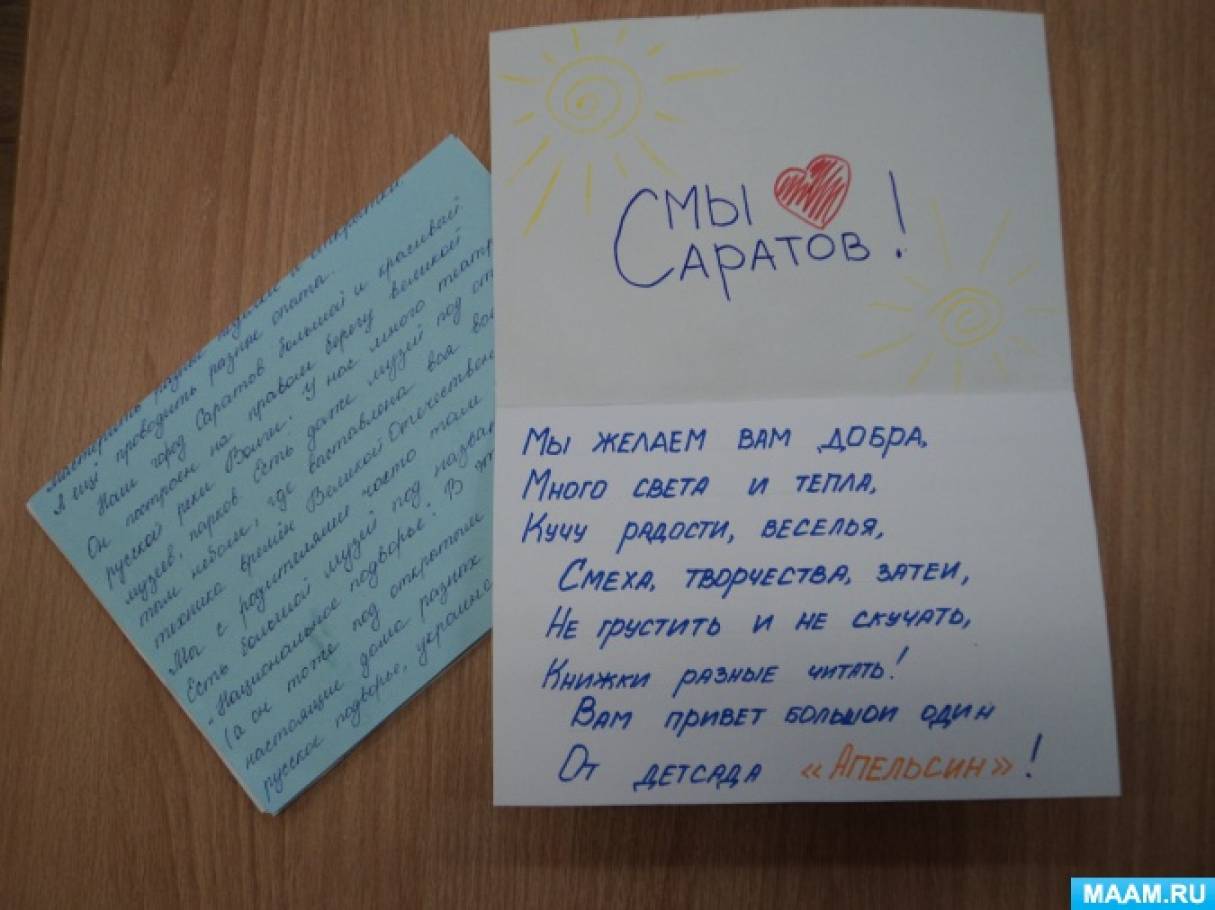 мастерить разные поделки и открытки.
А ещё проводить разные опыты.
Наш город Саратов большой и красивый.
Он построен на правом берегу великой
русской реки Волги. У нас много театр
музеев, парков. Есть даже музей под от
тым небом, где выставлена вся вое
техника времён Великой Отечествен
Мы с родителями часто там
Есть большой музей под назван
"Национальное подворье". В эт
(а он тоже под открытым
настоящие дома разных
русское подворье, украинс
СМЫ
САРАТОВ!
МЫ ЖЕЛАЕМ ВАМ ДОБРА,
МНОГО СВЕТА И ТЕПЛА,
КУЧУ РАДОСТИ, ВЕСЕЛЬЯ,
СМЕХА, ТВОРЧЕСТВА, ЗАТЕИ,
НЕ ГРУСТИТЬ И НЕ СКУЧАТЬ,
КНИЖКИ РАЗНЫЕ ЧИТАТЬ!
ВАМ ПРИВЕТ БОЛЬШОИ ОДИН
ОТ ДЕТСАДА «АПЕЛЬСИН»!
MAAM.RU